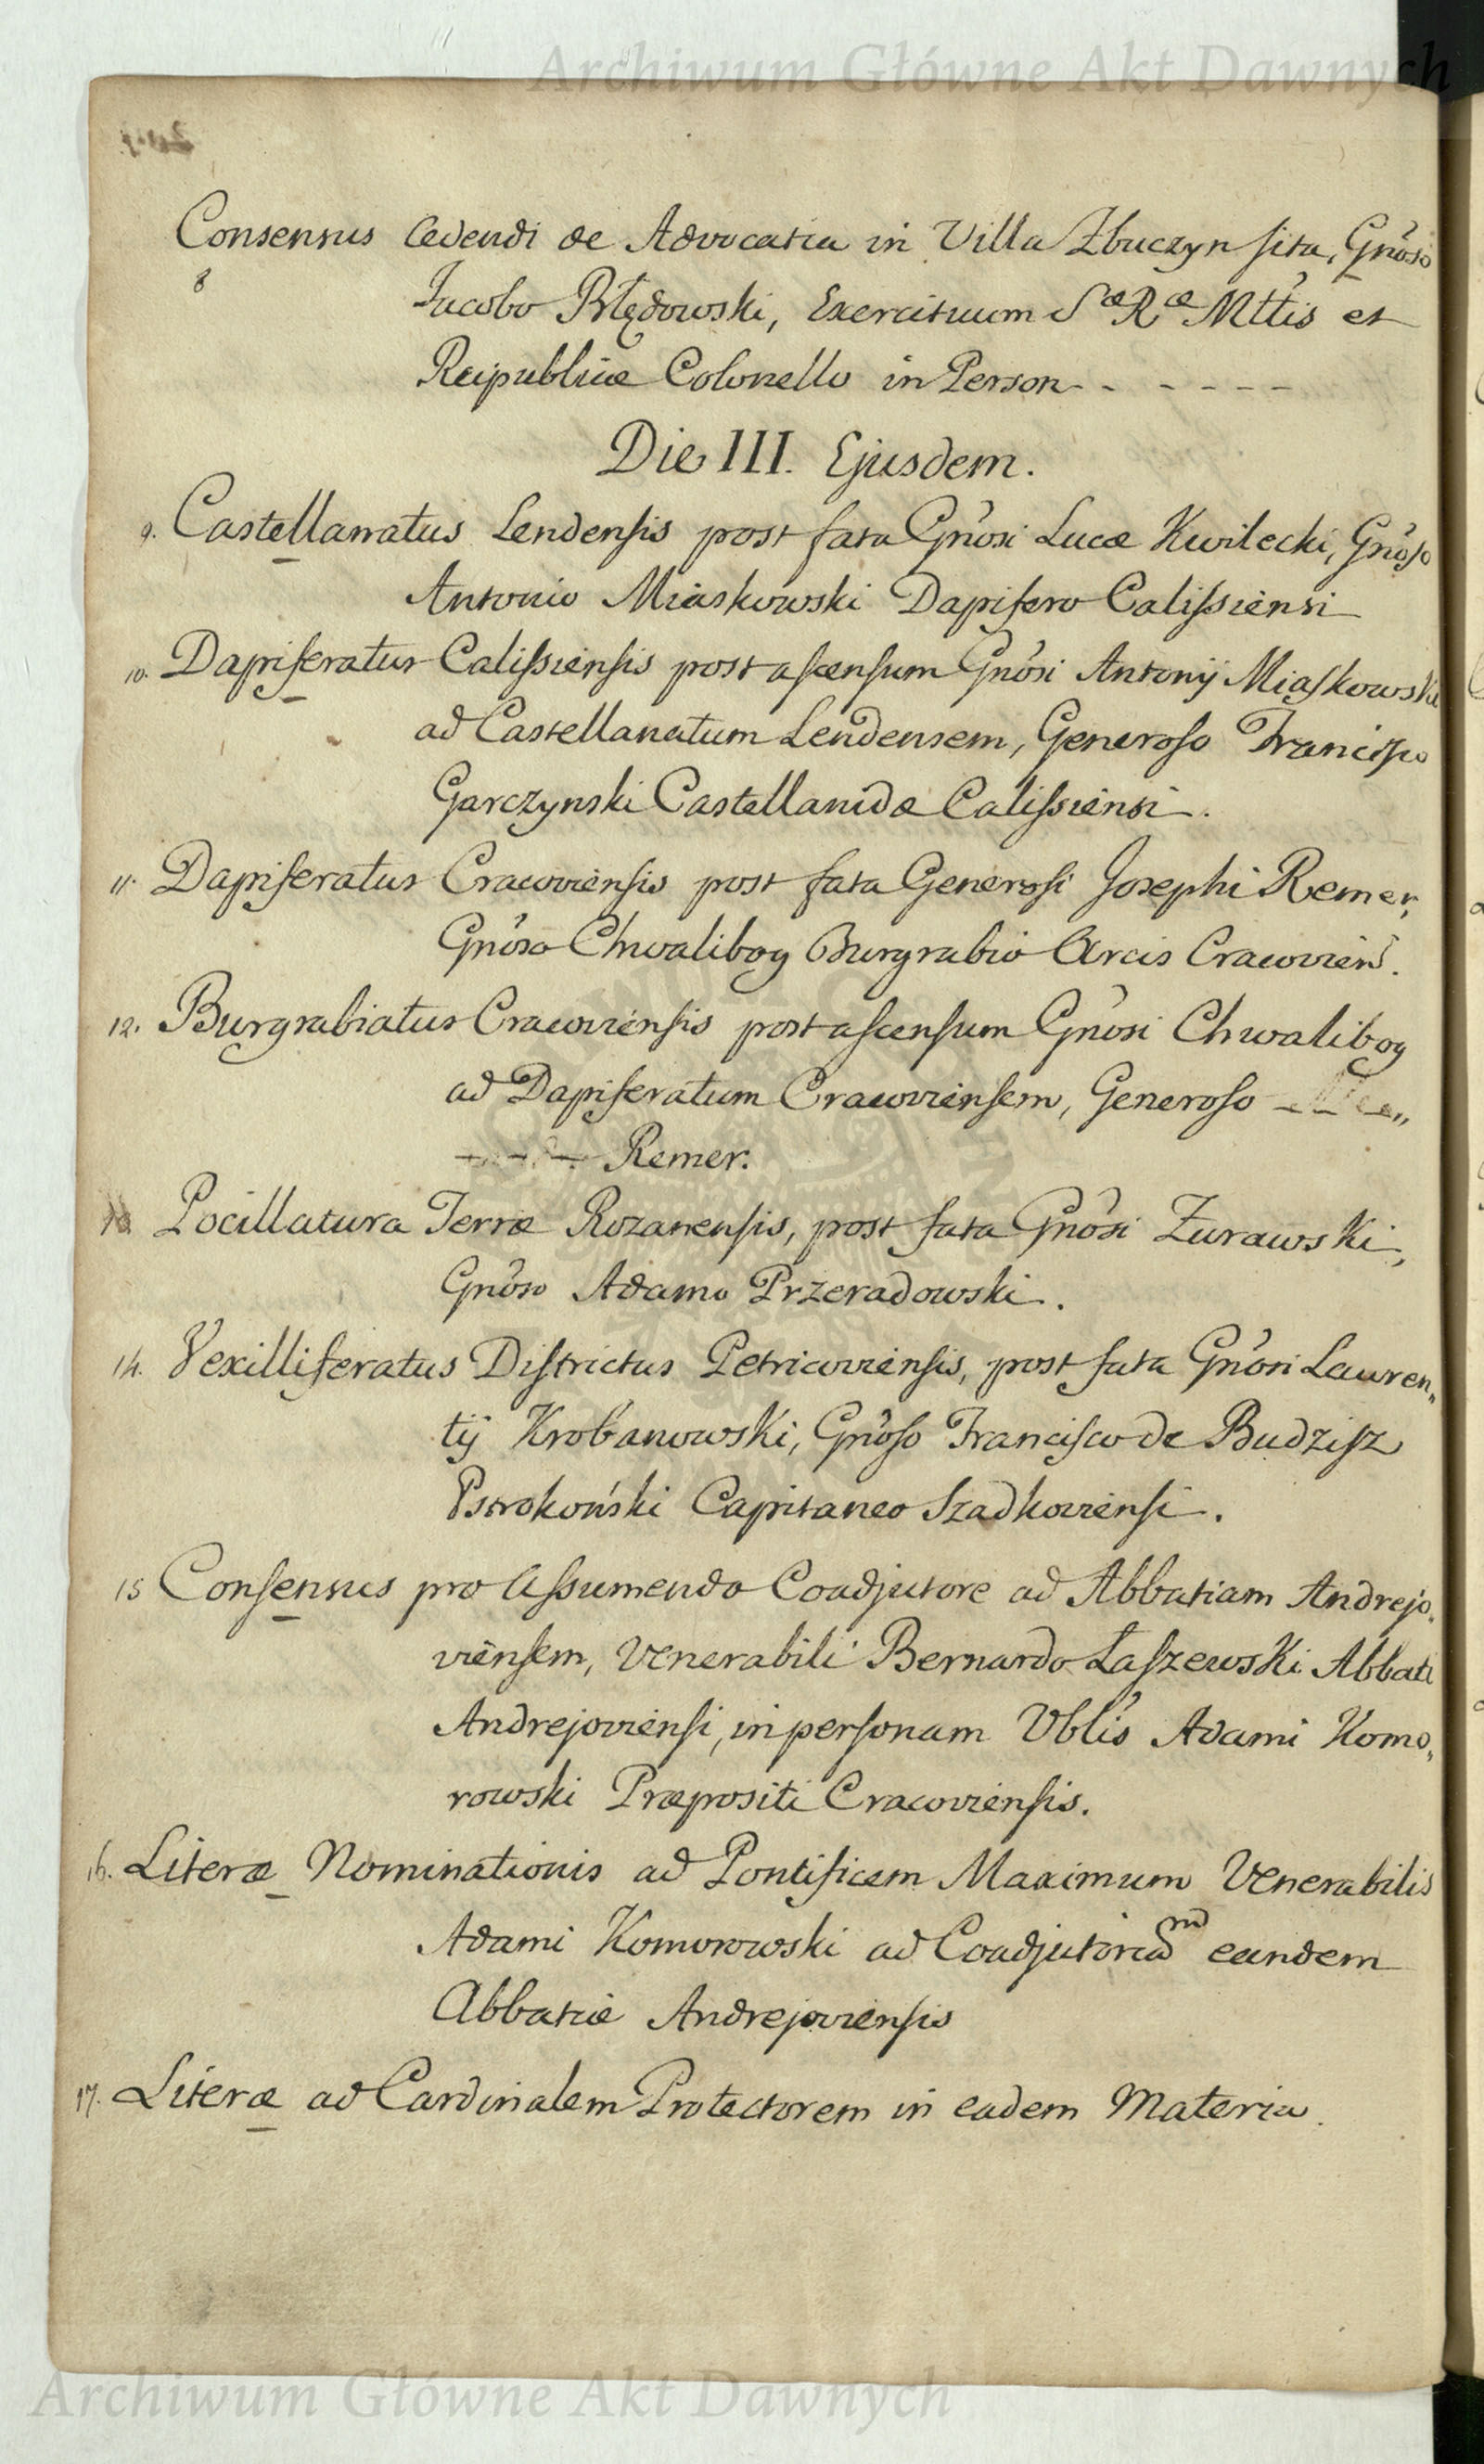 Archiwum Główne Akt Dawnych
Consensus Cedendi de Advocatia in Villa Zbuczyn sita, Gnoso
8
Jacobo Błędowski, Exercituum Sæ Ræ Mttis et
Reipublicæ Colonello in Person - - - - - -
Die III. Ejusdem.
9. Castellanatus Lendensis post fata Gnosi Lucæ Kwilecki, Gnoso
Antonio Miaskowski Dapifero Calissiensi
10. Dapiferatus Calissiensis post ascensum Gnosi Antonij Miaskowski
ad Castellanatum Lendensem, Generoso Francisco
Garczynski Castellanidæ Calissiensi.
11. Dapiferatus Cracoviensis post fata Generosi Josephi Remer,
Gnoso Chwalibog Burgrabio Arcis Cracovien.
12. Burgrabiatus Cracoviensis post ascensum Gnosi Chwalibog
ad Dapiferatum Cracoviensem, Generoso
Remer.
13 Pocillatura Terræ Rozanensis, post fata Gnosi Zurawski,
Gnoso Adamo Przeradowski.
14. Vexilliferatus Districtus Petricoviensis, post fata Gnosi Lauren„
tij Krobanowski, Gnoso Francisco de Budzisz
Pstrokoński Capitaneo Szadkoviensi.
15 Consensus pro Assumendo Coadjutore ad Abbatiam Andrejo„
viensem, Venerabili Bernardo Łaszewski Abbati
Andrejoviensi, in personam Vblis Adami Komo„
rowski Præpositi Cracoviensis.
16. Literæ Nominationis ad Pontificem Maximum Venerabilis
Adami Komorowski ad Coadjutoriam eandem
Abbatiæ Andrejoviensis
17. Literæ ad Cardinalem Protectorem in eadem Materia.
Archiwum Główne Akt Dawnych